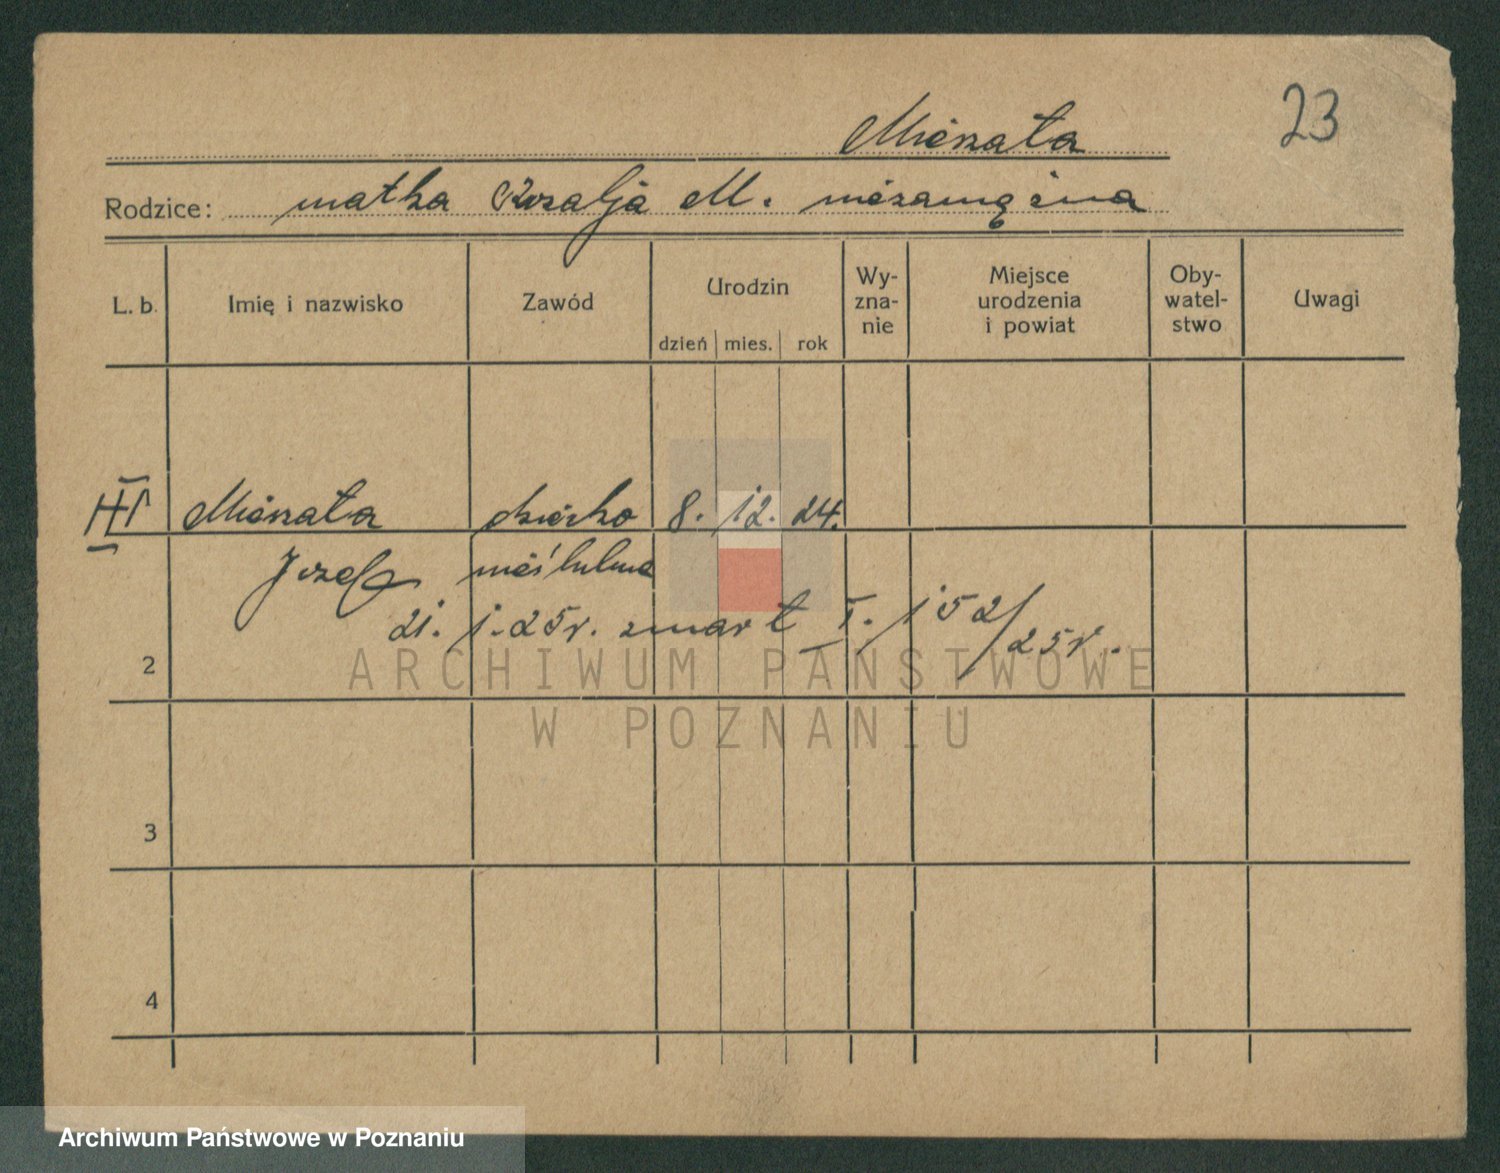 23
Mienata
Rodzice: matka Rozalja M. niezamężna
L. b. Imię i nazwisko Zawód Urodzin dzień mies. rok Wy-zna-nie Miejsce urodzenia i powiat Oby-watel-stwo Uwagi
Mienata dziecko 8. 12. 24.
Józef nieślubne
21. 1. 25 r. zmart I. 152/25 r.
2
3
4
ARCHIWUM PAŃSTWOWE
W POZNANIU
Archiwum Państwowe w Poznaniu